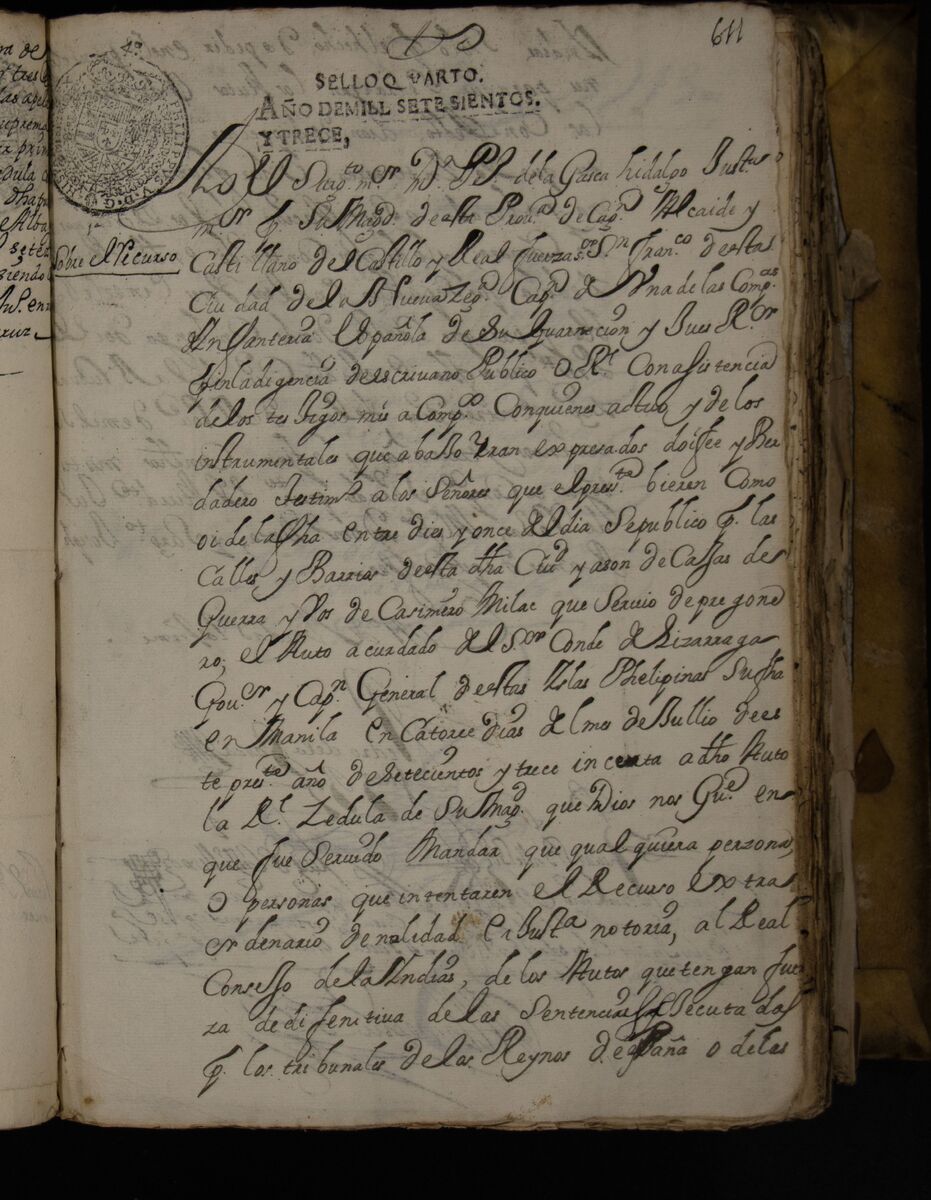 611
SELLO QVARTO.
AÑO DE MILL SETE SIENTOS.
Y TRECE,
PHILIPPVS V D G
ra de
y tres
las apel
uprema
prim
dula
e Alba
seten
Sobre el Recurso
Yo el Sargto mr Dn Po de la Gasca hidalgo Justa
mr p Su Magd de esta Prova de Capn Alcaide y
Castillano del Castillo y Real fuerzas Sn Franco de esta
Ciudad de la Nueva Zega Capn de Vna de las Compas
Infanteria Española de Su Guarnecion y Jues Ror
p inladigencia de escrivano Publico o Rl Con assistencia
de los testigos mis a Compos Con quienes actuo y de los
instrumentales que abasso Yran expresados doi fee y Ber
dadero testimo a los Señores que el presta bieren Como
oi de la fha entre dies y once del dia Se publico p las
Calles y Barrios de esta dha Ciud y a son de Caxas de
Guerra y Vos de Casimero Milac que Servio de pregone
ro, el Auto acurdado del Sor Conde de Lizarraga
Govor y Capn General de estas Yslas Phelipinas Su fha
en Manila en Catorce dias del mes de Jullio de es
te presta año de Setecientos y trece incerta a dho Auto
la Rl Zedula de Su Magd que Dios nos Gue en
que fue Servido Mandar que qual quiera perzona,
o personas que intentaren el Recurso extra
ordenario de nulidad e injusta notoria, al Real
Consesso de la Yndias, de los Autos que tengan fuer
za de difenitiva de las Sentencias Essecutadas
p los tribunales de los Reynos de españa o de las